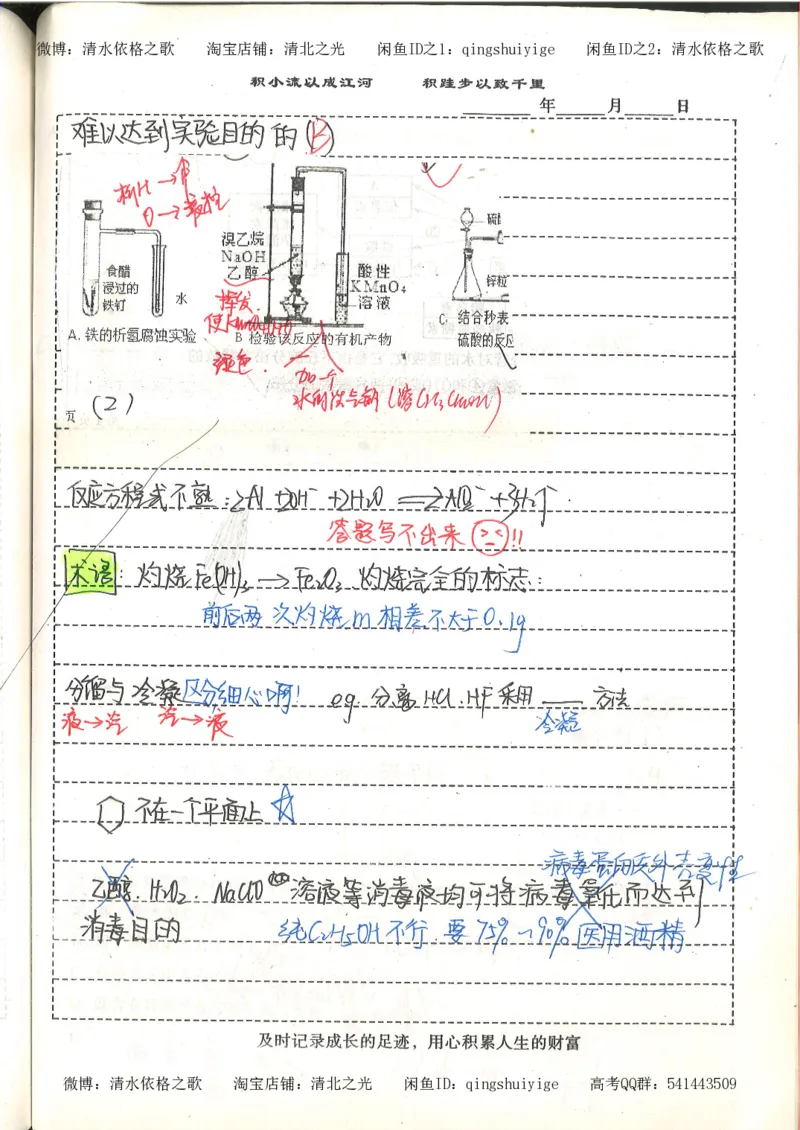 微博: 清水依格之歌 淘宝店铺: 清北之光 闲鱼ID之1: qingshuiyige 闲鱼ID之2: 清水依格之歌
积小流以成江河 积跬步以致千里
年 月 日
难以达到实验目的的(B)
析H→
O→
溴乙烷
NaOH
乙醇
食醋
浸过的
铁钉
水
酸性
KMnO₄
溶液
硫
锌粒
挥发
使KMnO₄(H⁺)
褪色.
A.铁的析氢腐蚀实验
B 检验该反应的有机产物
C. 结合秒表
硫酸的反应
加一个
水的洗气瓶
页 (2)
反应方程式不熟:2Al+2OH⁻+2H₂O=2AlO₂⁻+3H₂↑.
答题写不出来 !!
术语: 灼烧Fe(OH)₃→Fe₂O₃ 灼烧完全的标志:
前后两次灼烧m相差不大于0.1g
分馏与冷凝区分细心啊! eg. 分离HCl.HF采用 ___ 方法
液→汽 汽→液 冷凝
不在一个平面上 ☆
病毒蛋白质外壳变性
乙醇.H₂O₂.NaClO 溶液等消毒液均可将病毒氧化而达到
消毒目的 纯C₂H₅OH不行 要75%~90% 医用酒精
及时记录成长的足迹,用心积累人生的财富
微博: 清水依格之歌 淘宝店铺: 清北之光 闲鱼ID: qingshuiyige 高考QQ群: 541443509